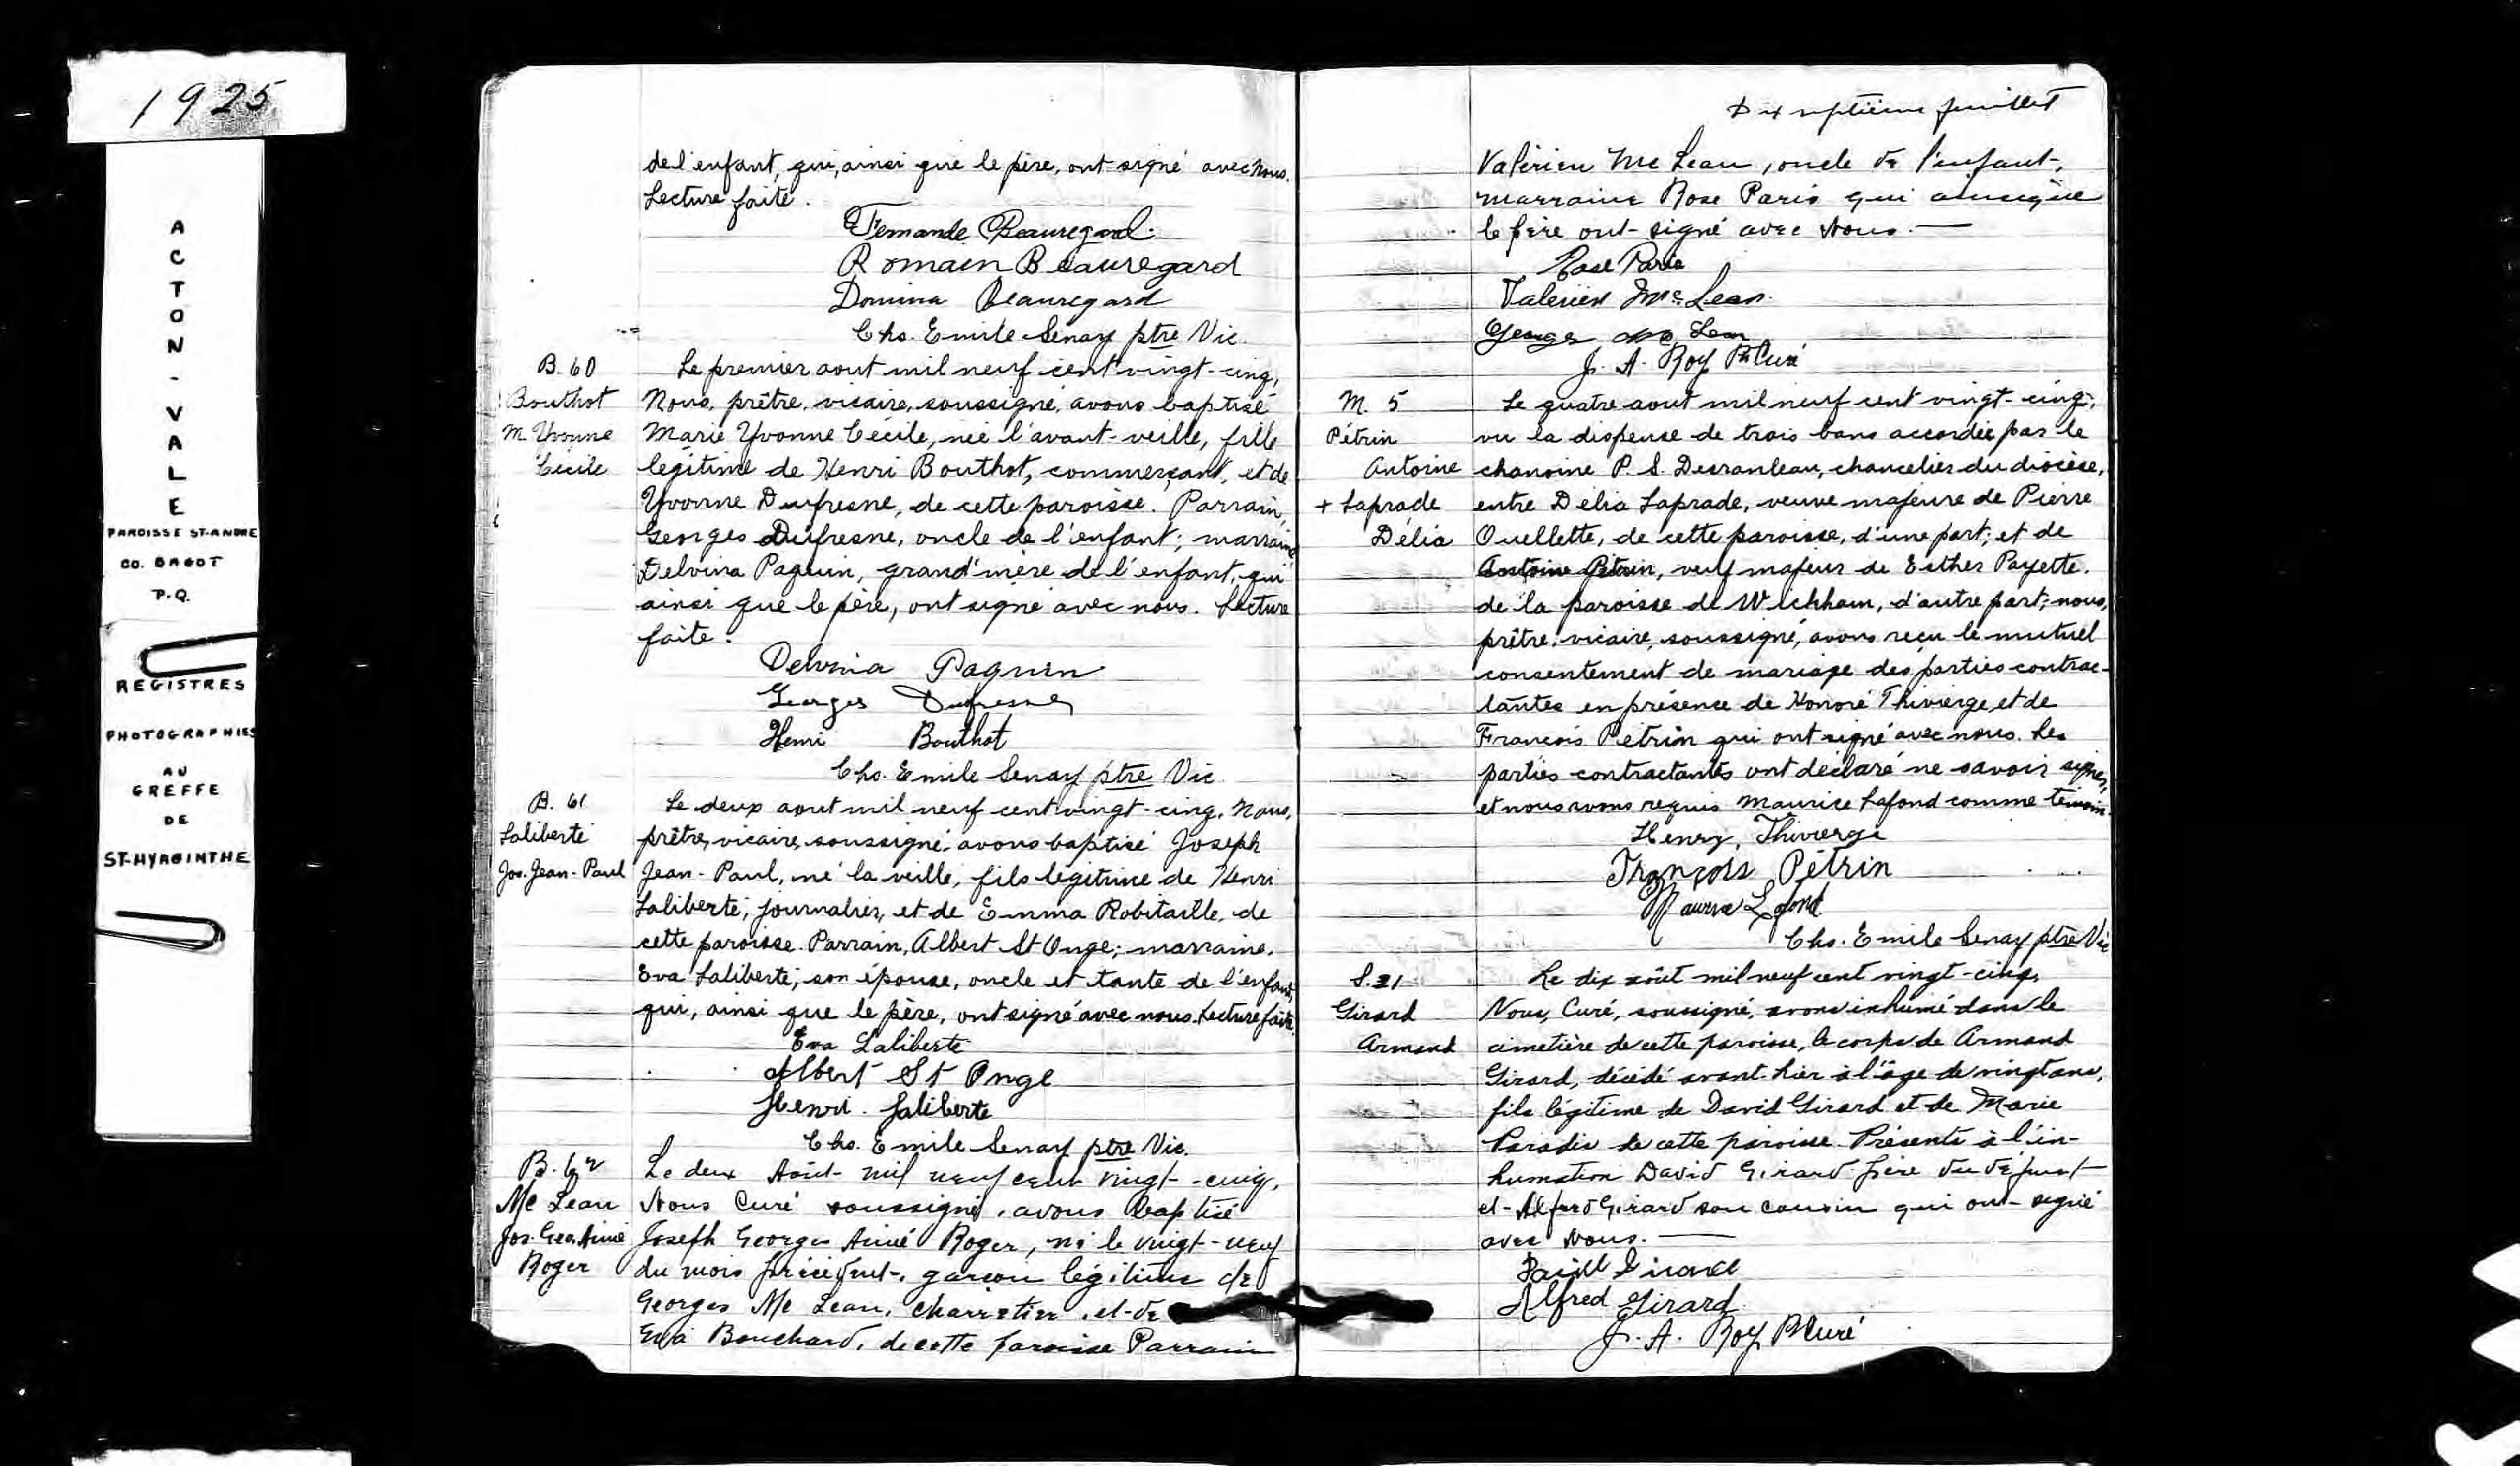 1925
A
C
T
O
N
-
V
A
L
E
PAROISSE ST-ANDRE
CO. BAGOT
P.Q.
REGISTRES
PHOTOGRAPHIES
AU
GREFFE
DE
ST-HYACINTHE
de l'enfant, qui, ainsi que le père, ont signé avec nous.
Lecture faite.
Fernande Beauregard.
Romain Beauregard
Domina Beauregard
Chs. Emile Senay ptre Vic.
B. 60
Bouthot
M. Yvonne
Cécile
Le premier aout mil neuf cent vingt-cinq,
Nous, prêtre, vicaire, soussigné, avons baptisé
Marie Yvonne Cécile, née l'avant-veille, fille
légitime de Henri Bouthot, commerçant, et de
Yvonne Dufresne, de cette paroisse. Parrain,
Georges Dufresne, oncle de l'enfant; marraine
Delvina Paquin, grand'mère de l'enfant, qui
ainsi que le père, ont signé avec nous. Lecture
faite.
Delvina Paquin
Georges Dufresne
Henri Bouthot
Chs. Emile Senay ptre Vic.
B. 61
Laliberté
Jos. Jean-Paul
Le deux aout mil neuf cent vingt-cinq, Nous,
prêtre, vicaire, soussigné, avons baptisé Joseph
Jean-Paul, né la veille, fils légitime de Henri
Laliberté, journalier, et de Emma Robitaille, de
cette paroisse. Parrain, Albert St Onge; marraine,
Eva Laliberté, son épouse, oncle et tante de l'enfant,
qui, ainsi que le père, ont signé avec nous. Lecture faite.
Eva Laliberte
Albert St Onge
Henri Laliberte
Chs. Emile Senay ptre Vic.
B. 62
Mc Lean
Jos. Geo. Aimé
Roger
Le deux Août mil neuf cent vingt-cinq,
Nous Curé soussigné, avons baptisé
Joseph Georges Aimé Roger, né le vingt-neuf
du mois précédent, garçon légitime de
Georges Mc Lean, charretier, et de
Eva Bouchard, de cette paroisse Parrain
Dix septième juillet
Valérien Mc Lean, oncle de l'enfant,
marraine Rose Paris qui ainsi que
le père ont signé avec Nous. —
Rose Paris
Valerien Mc Lean.
George Mc Lean
J. A. Roy Ptr Curé
M. 5
Pétrin
Antoine
+ Laprade
Délia
Le quatre aout mil neuf cent vingt-cinq,
vu la dispense de trois bans accordée par le
chanoine P. S. Desranleau, chancelier du diocèse,
entre Délia Laprade, veuve majeure de Pierre
Ouellette, de cette paroisse, d'une part; et de
Antoine Pétrin, veuf majeur de Esther Payette.
de la paroisse de Wickham, d'autre part; nous,
prêtre, vicaire, soussigné, avons reçu le mutuel
consentement de mariage des parties contrac-
tantes en présence de Honoré Thivierge, et de
François Pétrin qui ont signé avec nous. Les
parties contractantes ont déclaré ne savoir signer,
et nous avons requis Maurice Lafond comme témoin.
Henry, Thivierge
François Pétrin
Maurice Lafond
Chs. Emile Senay ptre Vic
S. 21
Girard
Armand
Le dix août mil neuf cent vingt-cinq,
Nous, Curé, soussigné, avons inhumé dans le
cimetière de cette paroisse, le corps de Armand
Girard, décédé avant-hier à l'âge de vingt ans,
fils légitime de David Girard et de Marie
Paradis de cette paroisse. Présents à l'in-
humation David Girard père du défunt
et Alfred Girard son cousin qui ont signé
avec Nous. —
David Girard
Alfred Girard
J. A. Roy Ptr Curé